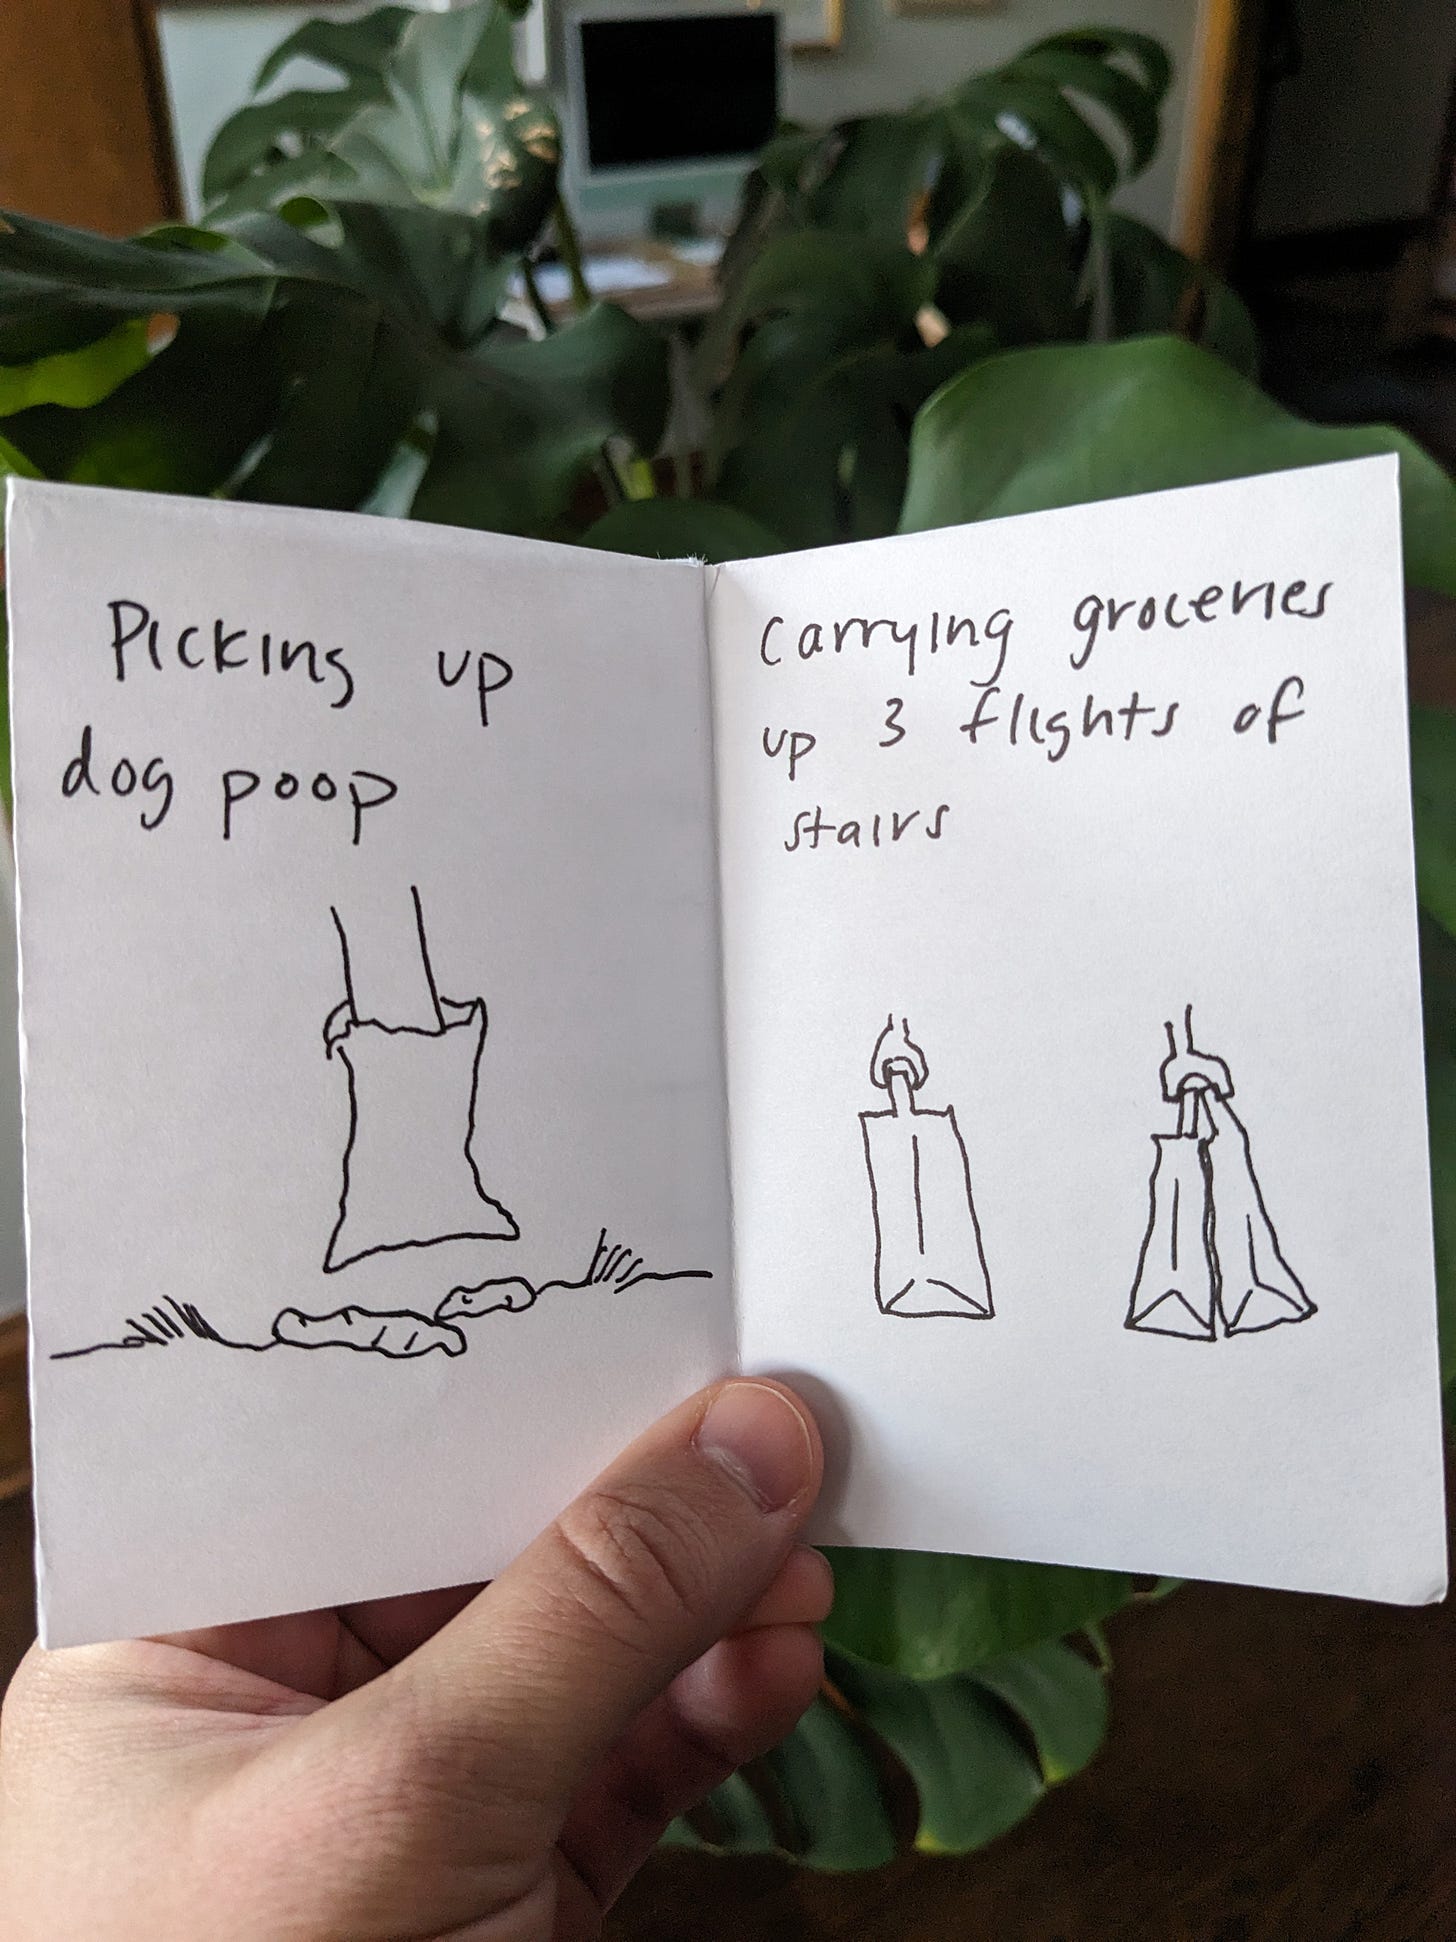 Picking up
dog poop
Carrying groceries
up 3 flights of
stairs